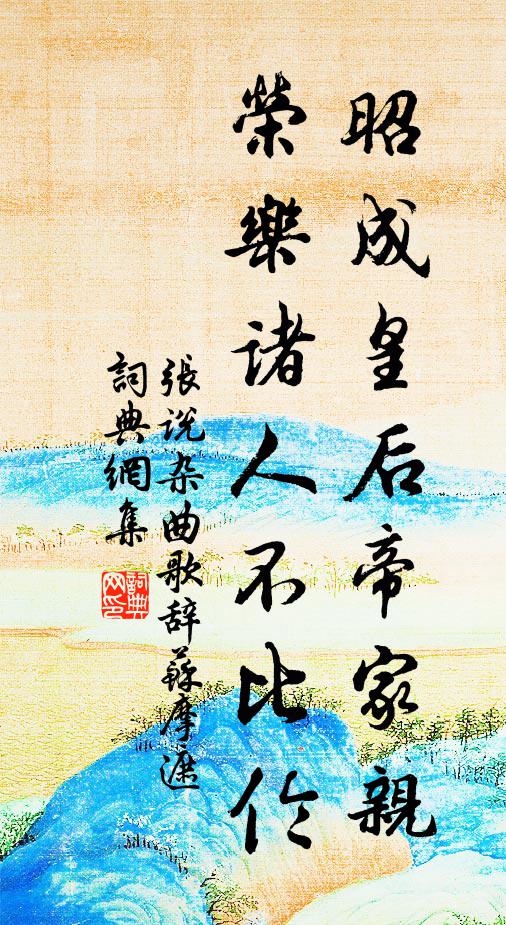 昭成皇后帝家親
榮樂諸人不比倫
張説杂曲歌辞蘇摩遮
詞典網集
詞典网印